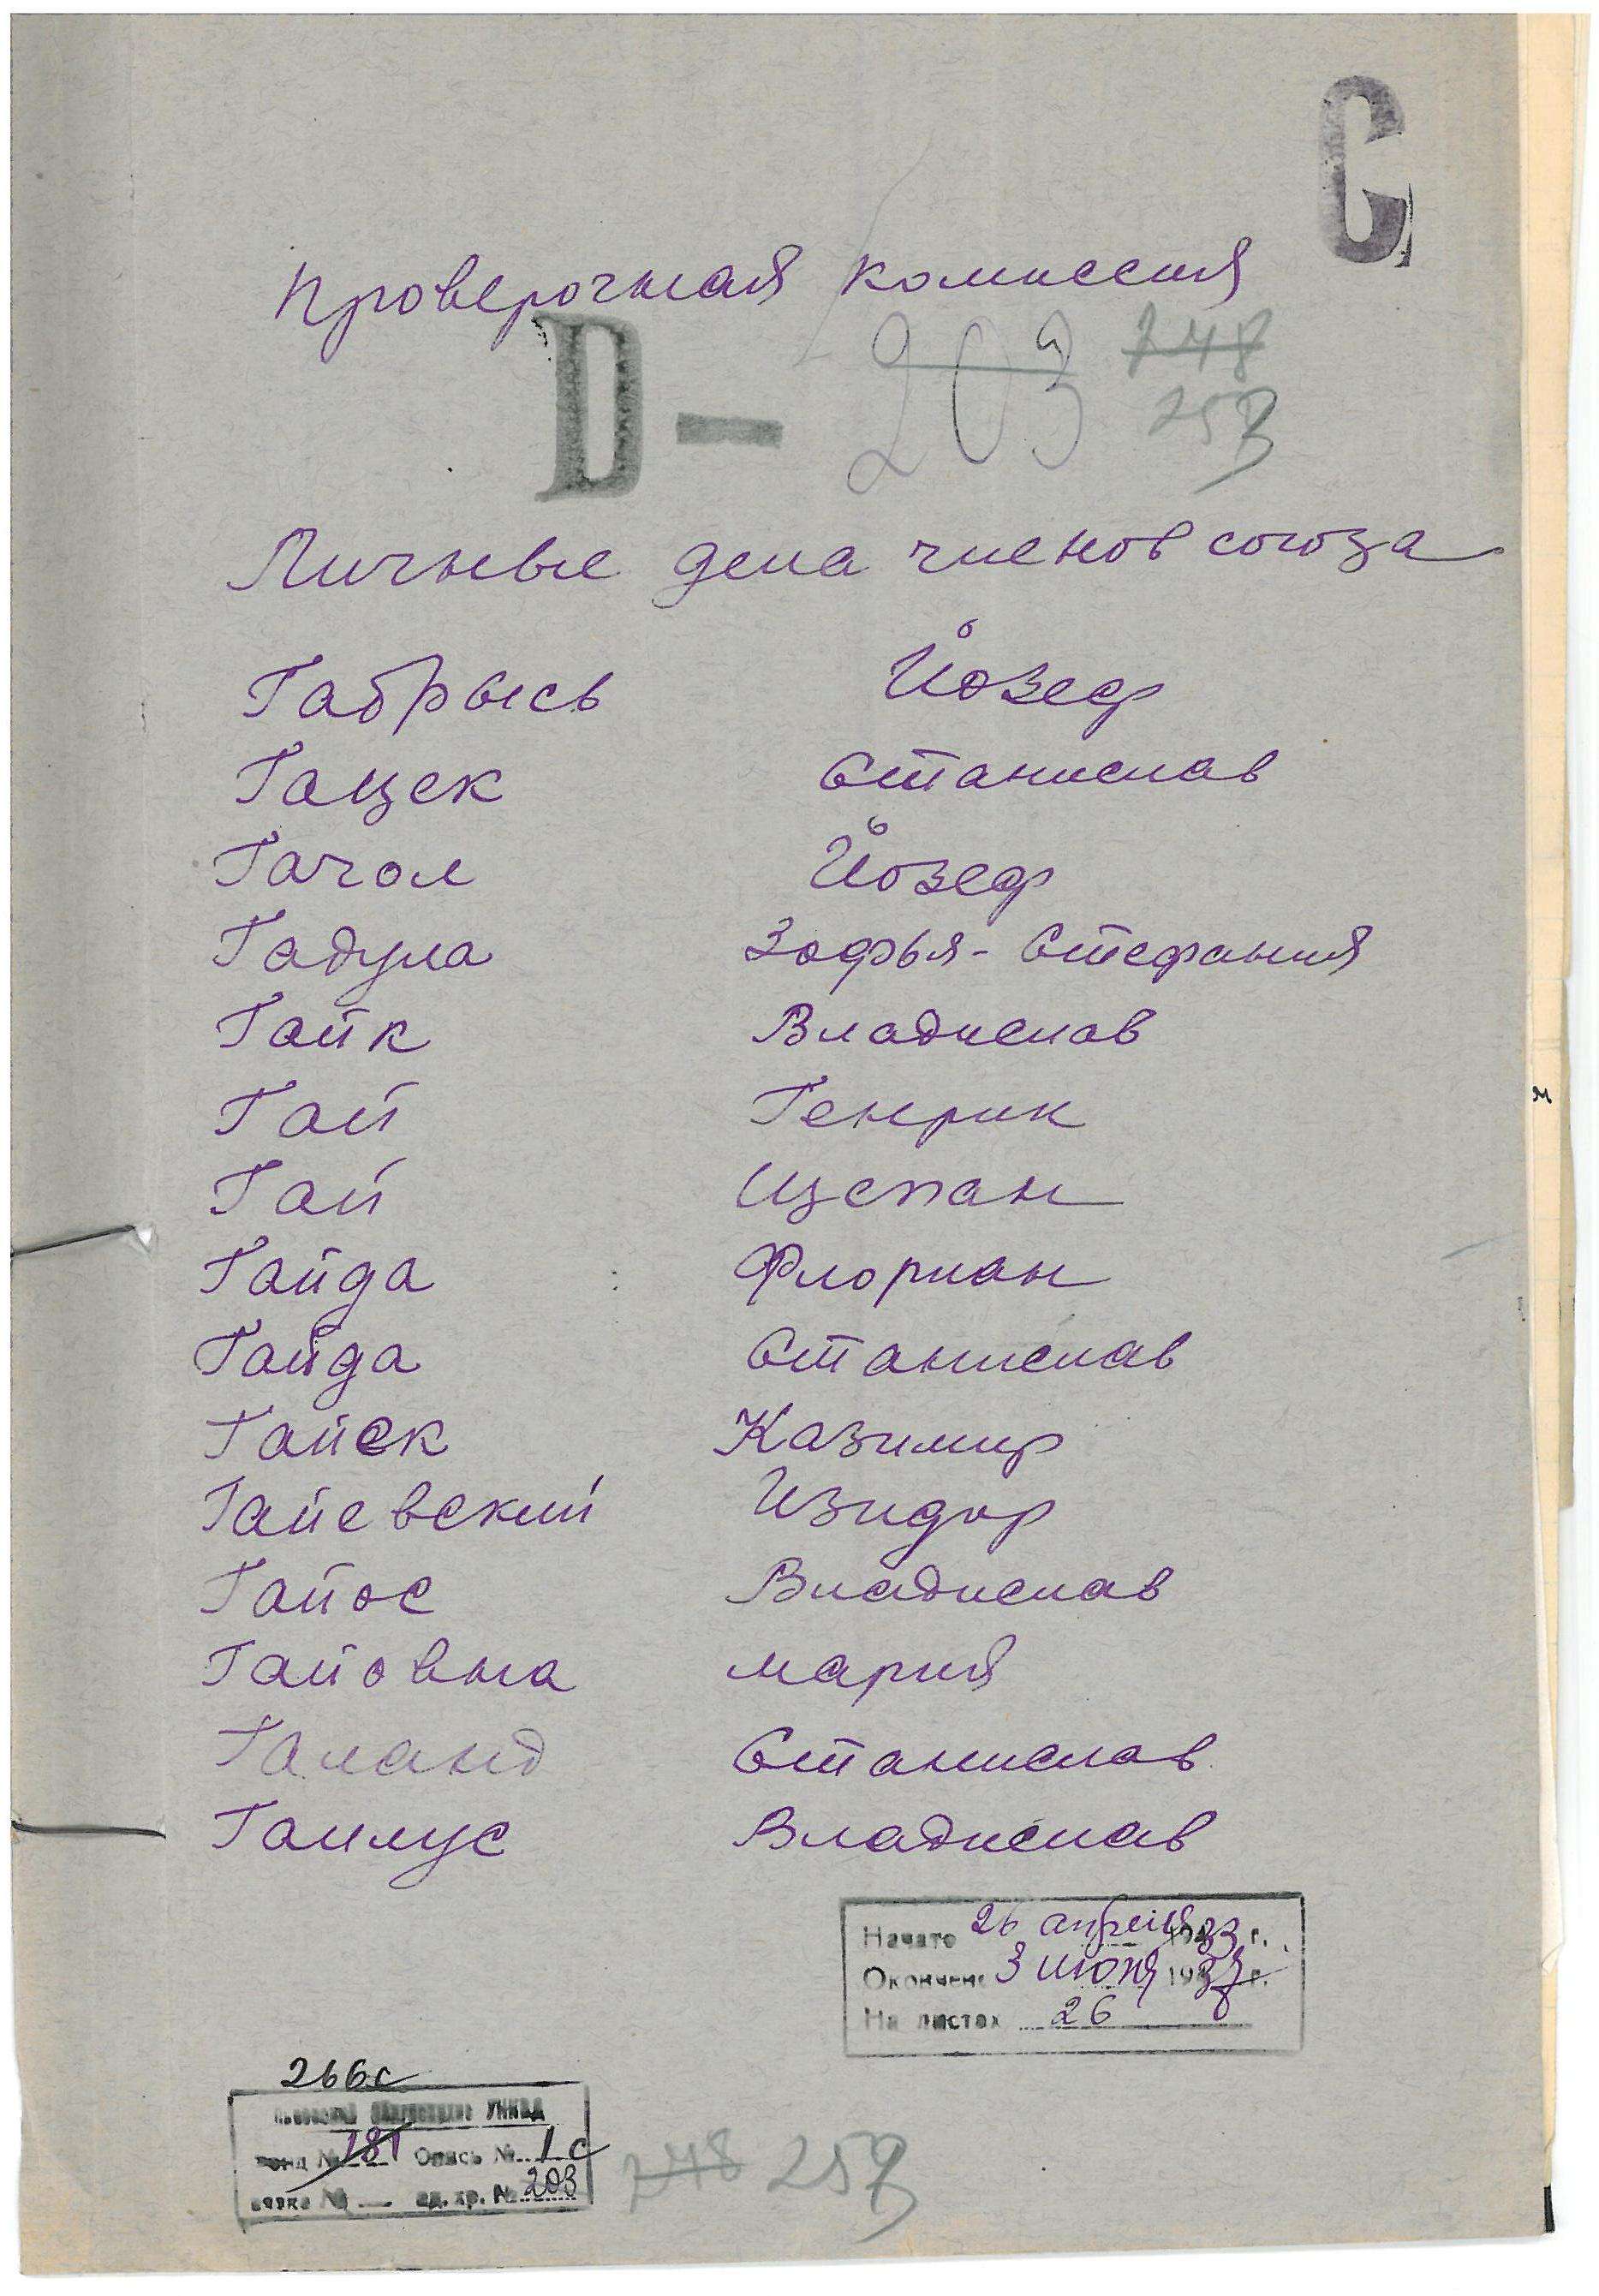 С
Проверочная комиссия
D — 203 248
253
Личные дела членов союза
Габрысь Йозеф
Гацек Станислав
Гачол Йозеф
Гадула Зофья-Стефания
Гайк Владислав
Гай Генрик
Гай Щепан
Гайда Флориан
Гайда Станислав
Гайек Казимир
Гайевский Изидор
Гайос Владислав
Гайовна Мария
Галанд Станислав
Галлус Владислав
Начато 26 апреля 1933 г.
Окончено 3 июня 1937 г.
На листах 26
266с
УНКВД
№ 181 Опись № 1с
№ — ед. хр. № 203
248 253